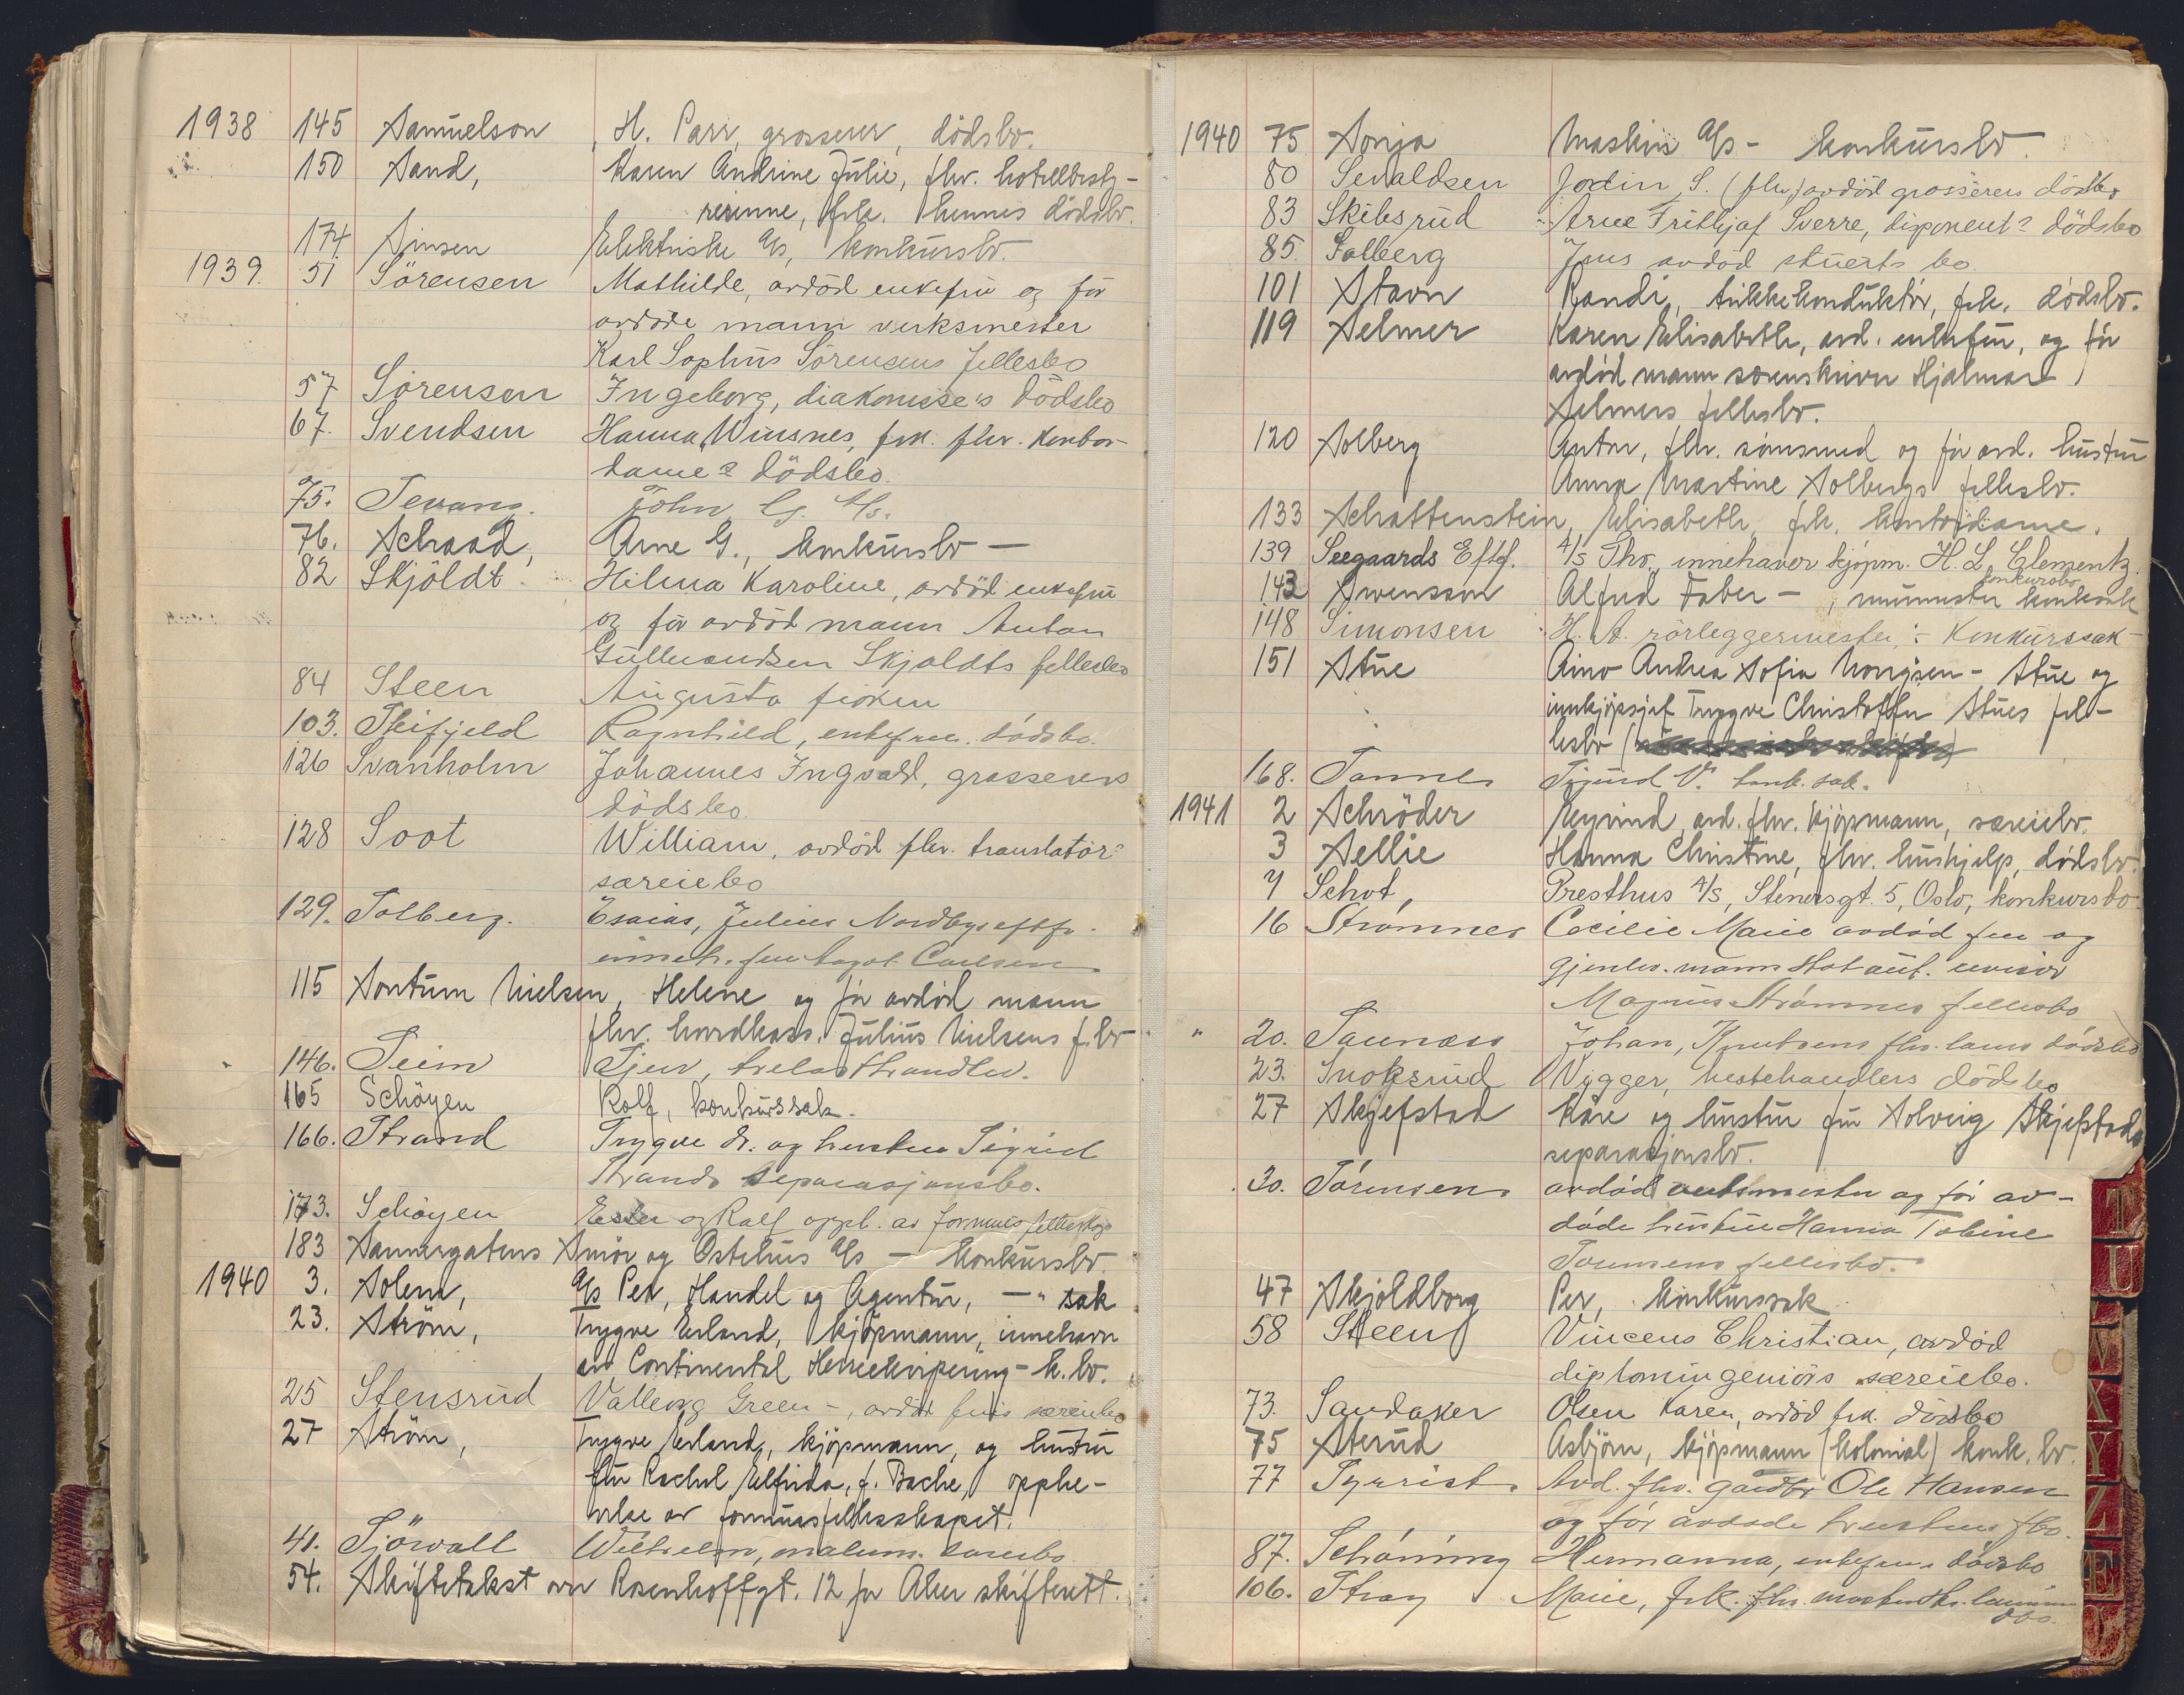 1938 145 Samuelson, H. Parr, grosserer, dödsbo.
150 Sand, Karen Andrine Julie, fhv. hotellbesty-
rerinne, frk. hennes dödsbo.
174 Simsen Elektriske A/s, konkursbo.
1939. 51 Sörensen Mathilde, avdöd enkefru og för
avdöde mann verksmester
Karl Sophus Sörensens fellesbo
57 Sörensen Ingeborg, diakonisse's dödsbo
67. Svendsen Hanna Winsnes, frk. fhv. kontor-
dame's dödsbo.
75. Sevang. John G. A/s.
76. Schaad, Arne G., konkursbo —
82 Skjöldt. Hilma Karoline, avdöd enkefru
og för avdöd mann Anton
Gullmundsen Skjoldts fellesbo
84 Steen Augusta fröken
103. Ragnhild, enkefrue. dödsbo.
126 Svanholm Johannes Ingvald, grosserers
dödsbo.
128 Soot William, avdöd fhv. translatör
særeiebo
129. Solberg. Esaias, Julius Nordbys eftf.
inneh. fru Aagot Carlsen
115 Sontum Nielsen, Helene og för avdöd mann
fhv. hovedkass. Julius Nielsens f.bo
146. Seim trelasthandler.
165 Schöyen Rolf, konkurssak.
166. Strand Trygve dr. og hustru Sigrid
Strands separasjonsbo.
173. Schöyen Ester og Rolf oppl. av formuesfellesskap
183 Sannergatens Smör og Ostehus A/s — konkursbo.
1940 3. Solem, A/s Per, Handel og Agentur, —"— sak
23. Ström, Trygve Erland, kjöpmann, innehaver
av Continental Herreekvipering - k.bo.
25 Stensrud Valborg Green -, avdöd fru's særeiebo
27 Ström, Trygve Erland, kjöpmann, og hustru
fru Rachel Elfrida, f. Bache, opphe-
velse av formuesfellesskapet.
41. Sjövall Wilhelm, særeiebo
54. Skiftetakst over Rosenhoffgt. 12 for Aker skifterett.
1940 75 Sonja Maskin A/s - konkursbo.
80 Sevaldsen Jodin S. (fhv.) avdöd grosserers dödsbo
83 Skibsrud Arne Frithjof Sverre, disponent's dödsbo
85. Solberg Jens avdöd stuerts bo.
101 Stavn Randi, trikkekonduktör, frk. dödsbo.
119 Selmer Karen Elisabeth, avd. enkefru, og för
avdöd mann sorenskriver Hjalmar
Selmers fellesbo.
120 Solberg Anton, fhv. sömsmed og för avd. hustru
Anna Martine Solbergs fellesbo.
133 Schattenstein, Elisabeth, frk. kontordame.
139 Seegaards Eftf. A/S Tho., innehaver kjöpm. H. L. Clementz.
konkursbo
142 Svensson Alfred Faber - , murmester
148 Simonsen H. A. rörleggermester: - Konkurssak -
151 Stue Aino Andrea Sofia - Stue og
innkjöpsjef Trygve Christoffer Stues fel-
lesbo
168. Sannes Sigurd V. konk. sak.
1941 2 Schröder Eyvind, avd. fhv. kjöpmann, særeiebo.
3 Sellie Hanna Christine, fhv. hushjelp, dödsbo.
7 Schot, Presthus A/S, Stenersgt. 5, Oslo, konkursbo.
16 Strömnes Cecilie Marie avdöd fru og
gjenlev. mann Stataut. revisor
Magnus Strömnes fellesbo
" 20. Saunæss Johan, Knutsens dödsbo
23. Snoksrud Vigger, hestehandlers dödsbo
27 Skjefstad Kåre og hustru fru Solveig Skjefstads
separasjonsbo.
30. Sörensen avdöd og för av-
döde hustrue Hanna Tobine
Sörensens fellesbo.
47 Skjoldborg Per, konkurssak
58 Steen Vincens Christian, avdöd
diplomingeniörs særeiebo.
73. Sandaker Olsen Karen, avdöd frk. dödsbo
75 Sterud Asbjörn, kjöpmann (kolonial) konk. bo.
77 Syrrist Avd. fhv. gårdbr Ole Hansen
og för avdöde hustrues fbo.
87. Schöning Hermanna, enkefrues dödsbo
106. Stray Marie, frk. fhv.
dbo.
T
U
X
Y
Z
Æ
Ø